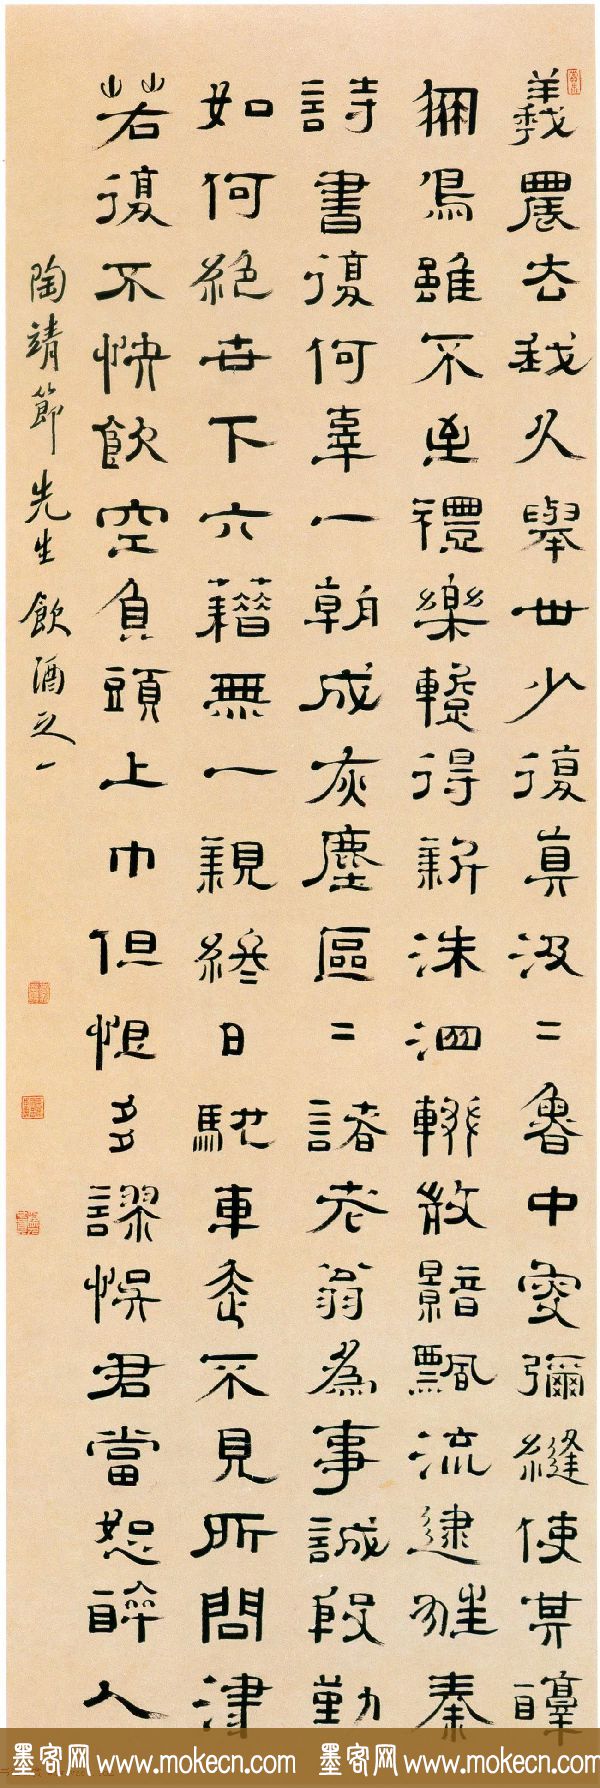 羲農去我久舉世少復真汲二魯中叟彌縫使其醇
鳳鳥雖不至禮樂蹔得新洙泗輟微響飄流逮狂秦
詩書復何辜一朝成灰塵區二諸老翁為事誠殷勤
如何絕世下六藉無一親終日馳車走不見所問津
若復不快飲空負頭上巾但恨多謬悞君當恕醉人
陶靖節先生飲酒之一
墨客网 www.mokecn.com 墨客网 www.mokecn.com